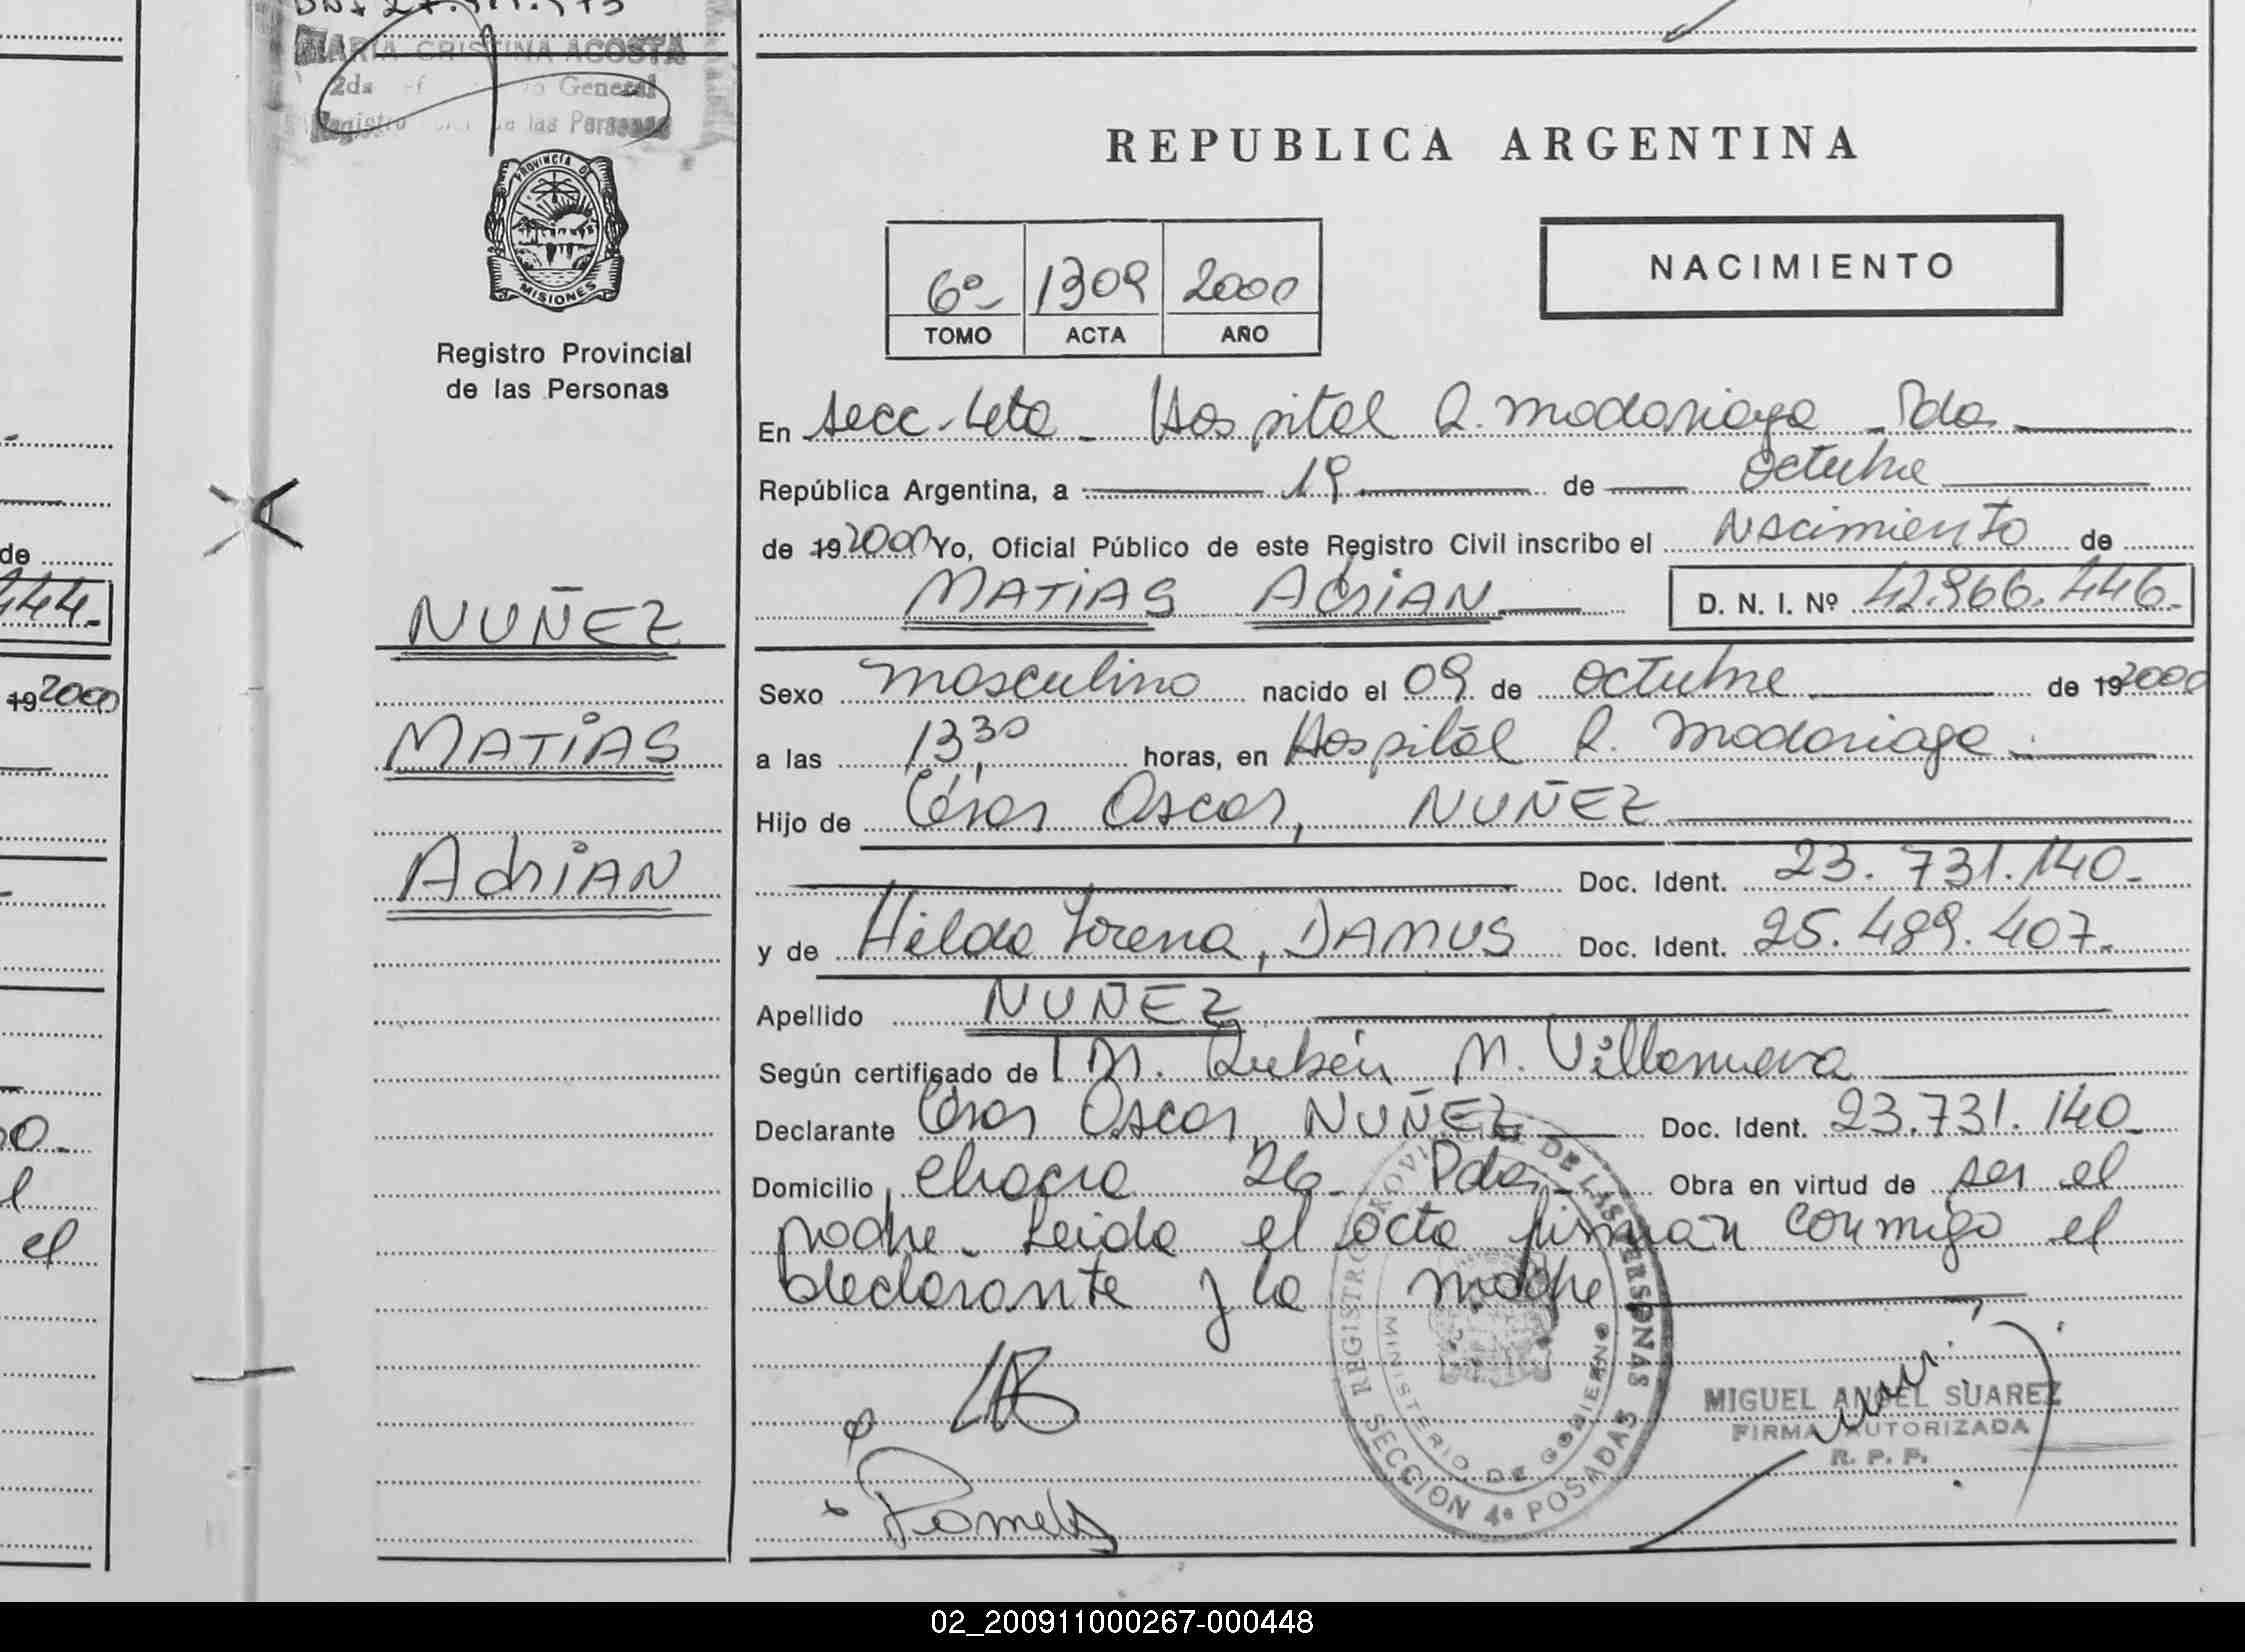 MARIA CRISTINA ACOSTA
2da General
Registro de las Personas
PROVINCIA DE
MISIONES
Registro Provincial
de las Personas
NUÑEZ
MATIAS
AdriAN
REPUBLICA ARGENTINA
6º 1309 2000
TOMO ACTA AÑO
NACIMIENTO
En Secc. 4ta - Hospital R. Madariaga - Pdas
República Argentina, a 19 de Octubre
de 19 2000 Yo, Oficial Público de este Registro Civil inscribo el Nacimiento de
MATIAS AdriAN D. N. I. Nº 42.966.446.-
Sexo masculino nacido el 09 de Octubre de 19 2000
a las 13,30 horas, en Hospital R. Madariaga.-
Hijo de César Oscar, NUÑEZ
Doc. Ident. 23.731.140.-
y de Hilda Lorena, DAMUS Doc. Ident. 25.489.407.-
Apellido NUÑEZ
Según certificado de Rubén M. Villanueva
Declarante César Oscar, NUÑEZ Doc. Ident. 23.731.140.-
Domicilio Chacra 26 - Pdas.- Obra en virtud de ser el
padre. Leida el acta firman conmigo el
declarante y la madre
REGISTRO PROVINCIAL DE LAS PERSONAS
MINISTERIO DE GOBIERNO
SECCION 4ª POSADAS
MIGUEL ANGEL SUAREZ
FIRMA AUTORIZADA
R. P. P.
de
444.-
19 2000
el
02_200911000267-000448